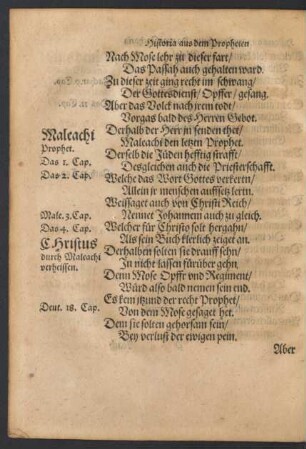 Historia aus dem Propheten
Nach Mose lehr zu dieser fart/
Das Passah auch gehalten ward.
Zu dieser zeit ging recht im schwang/
Der Gottesdienst/ Opffer/ gesang.
Aber das Volck nach jrem todt/
Vorgas bald des Herren Gebot.
Maleachi
Prophet.
Das 1. Cap.
Das 2. Cap.
Derhalb der Herr jn senden thet/
Maleachi den letzten Prophet.
Derselb die Jüden hefftig strafft/
Desgleichen auch die Priesterschafft.
Welche das Wort Gottes verkertn/
Allein jr menschen auffsetz lertn.
Weissaget auch von Christi Reich/
Male. 3. Cap.
Nennet Johannem auch zu gleich.
Das 4. Cap.
Welcher für Christo solt hergahn/
CHristus
durch Maleachi
verheissen.
Als sein Buch klerlich zeiget an.
Derhalben solten sie drauff sehn/
Jn nicht lassen fürüber gehn.
Denn Mose Opffr vnd Regiment/
Würd also bald nemen sein end.
Deut. 18. Cap.
Es kem jtzund der recht Prophet/
Von dem Mose gesaget het.
Dem sie solten gehorsam sein/
Bey verlust der ewigen pein.
Aber